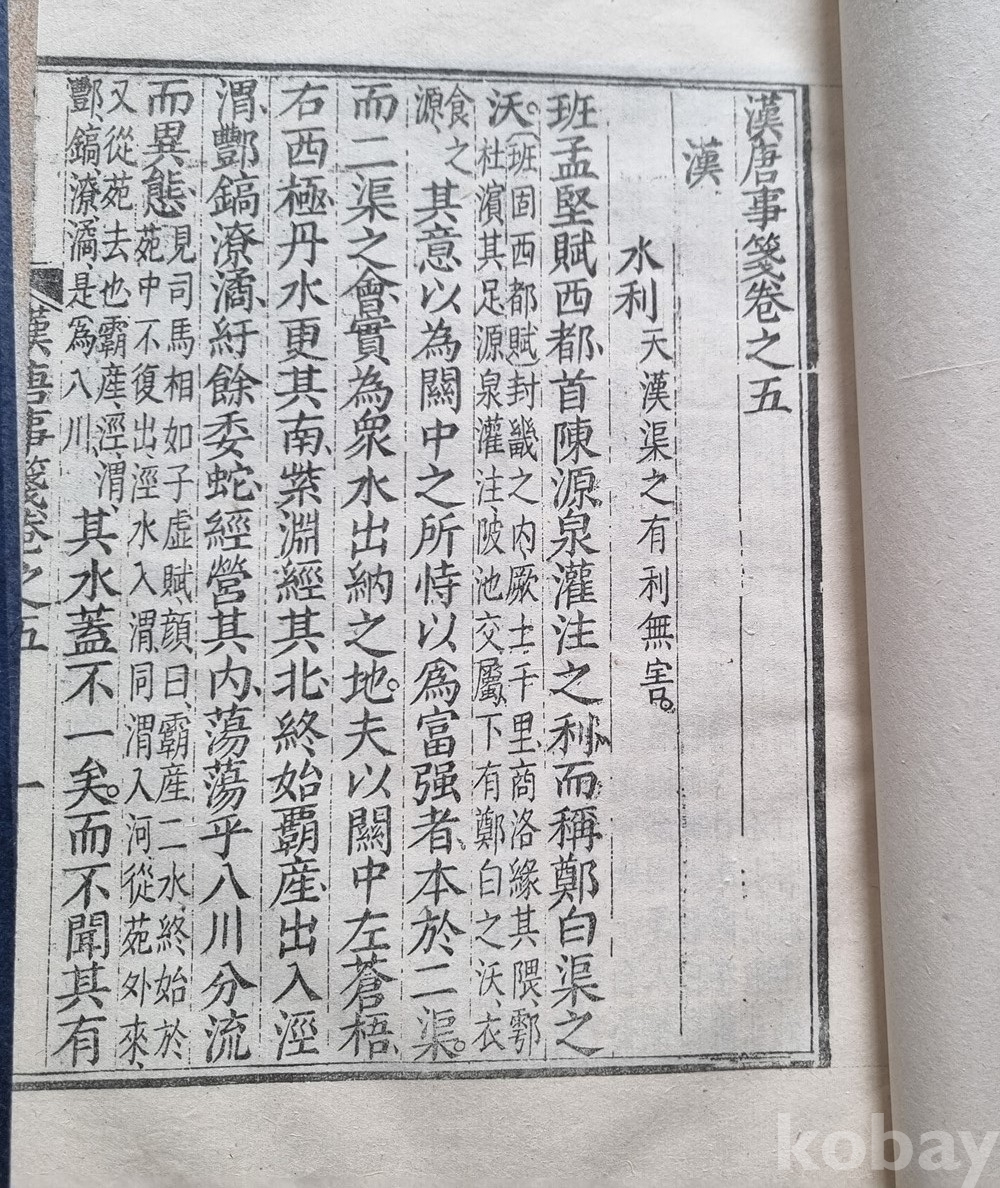 漢唐事箋卷之五
漢
水利 大漢渠之有利無害。
班孟堅賦西都、首陳源泉灌注之利、而稱鄭白渠之
沃。(班固西都賦)封畿之内、厥土千里、商洛緣其隈、鄠
杜濱其足、源泉灌注、陂池交屬、下有鄭白之沃、衣
食之
源、其意以為關中之所恃以爲富强者、本於二渠。
而二渠之會、實為衆水出納之地。夫以關中左蒼梧、
右西極、丹水更其南、紫淵經其北、終始覇産、出入涇
渭、酆鎬潦潏、紆餘委蛇、經營其内、蕩蕩乎八川分流
而異態、見司馬相如子虛賦顔曰、霸産二水、終始於
苑中不復出、涇水入渭、同渭入河、從苑外來、
又從苑去也、霸産、涇、渭、
酆、鎬、潦、潏、是為八川、其水蓋不一矣。而不聞其有
漢唐事箋卷之五
一
kobay